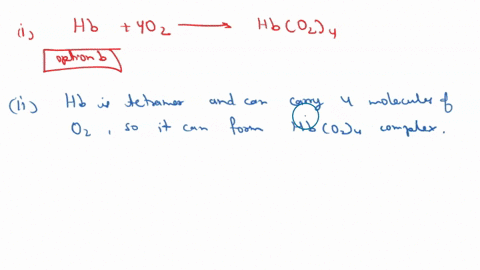 (i) Hb + 4O₂ ⟶ Hb(O₂)₄
option b
(ii) Hb is tetramer and can carry 4 molecules of
O₂, so it can form Hb(O₂)₄ complex.